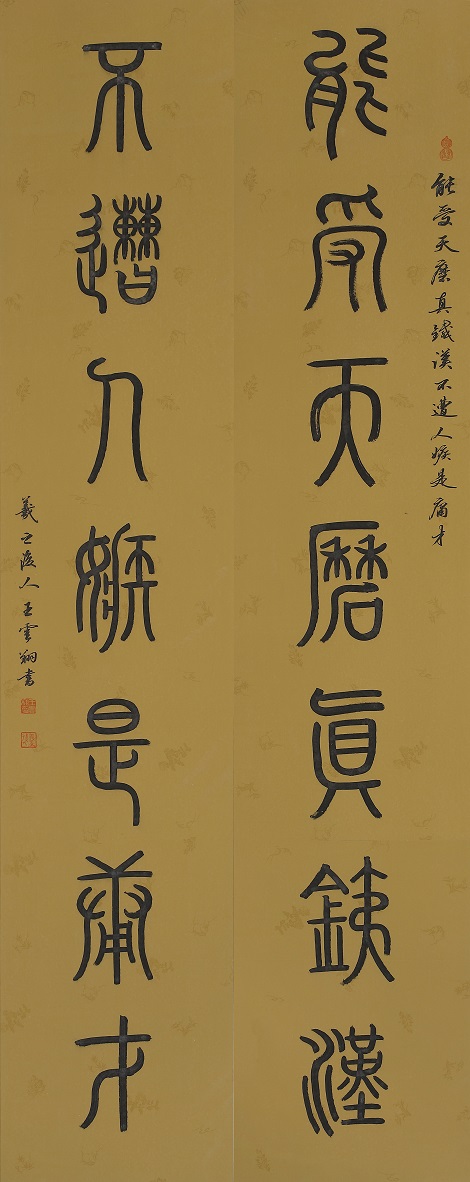 能受天磨真鐵漢不遭人嫉是庸才
能受天磨眞鐵漢
不遭人嫉是庸才
羲之後人王雲翔書